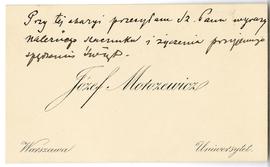 Przy tej okazyi przesyłam Sz. Panu wyrazy
należnego szacunku i życzenia przyjemnego
spędzenia Świąt.
Józef Mołozewicz
Warszawa
Uniwersytet.